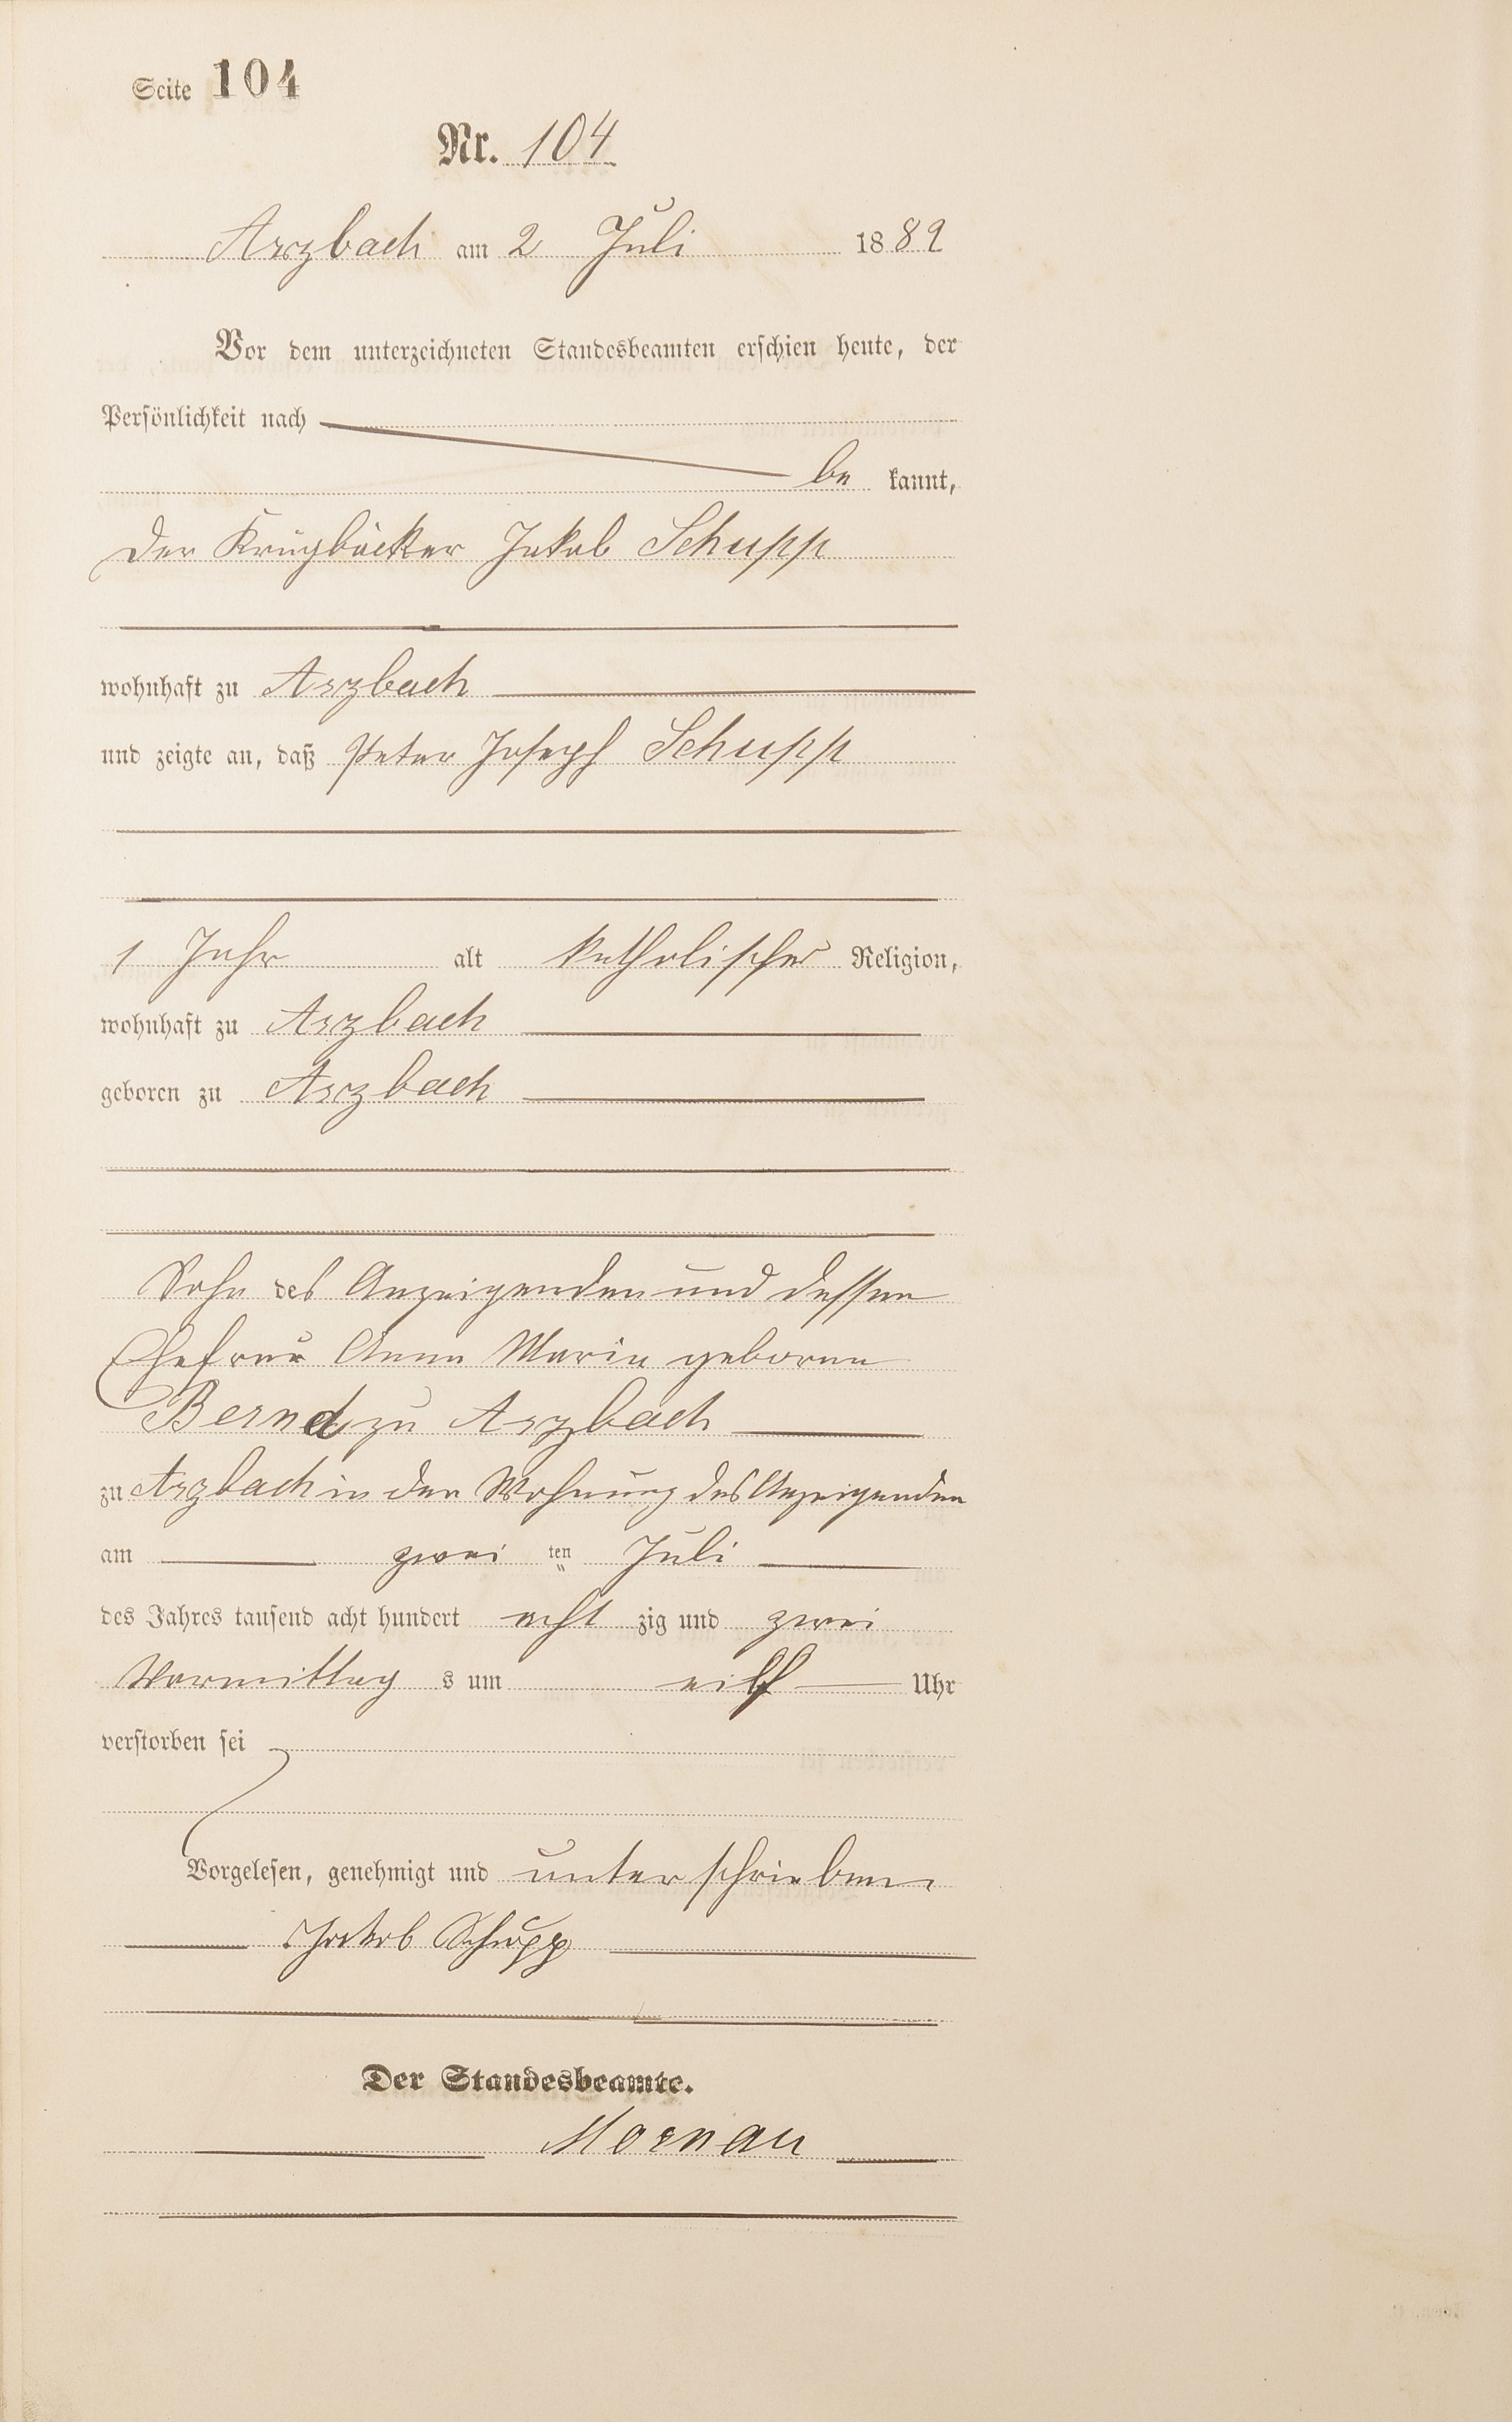 Seite 104
Nr. 104
Arzbach am 2 Juli 1882
Vor dem unterzeichneten Standesbeamten erschien heute, der
Persönlichkeit nach
be kannt,
der Krugbäcker Jakob Schupp
wohnhaft zu Arzbach
und zeigte an, daß Peter Joseph Schupp
1 Jahr alt katholischer Religion,
wohnhaft zu Arzbach
geboren zu Arzbach
Sohn des Anzeigenden und dessen
Ehefrau Anna Maria geborne
Bernd zu Arzbach
zu Arzbach in der Wohnung des Anzeigenden
am zwei ten Juli
des Jahres tausend acht hundert acht zig und zwei
Vormittag s um eilf Uhr
verstorben sei
Vorgelesen, genehmigt und unterschrieben
Jakob Schupp
Der Standesbeamte.
Mornau